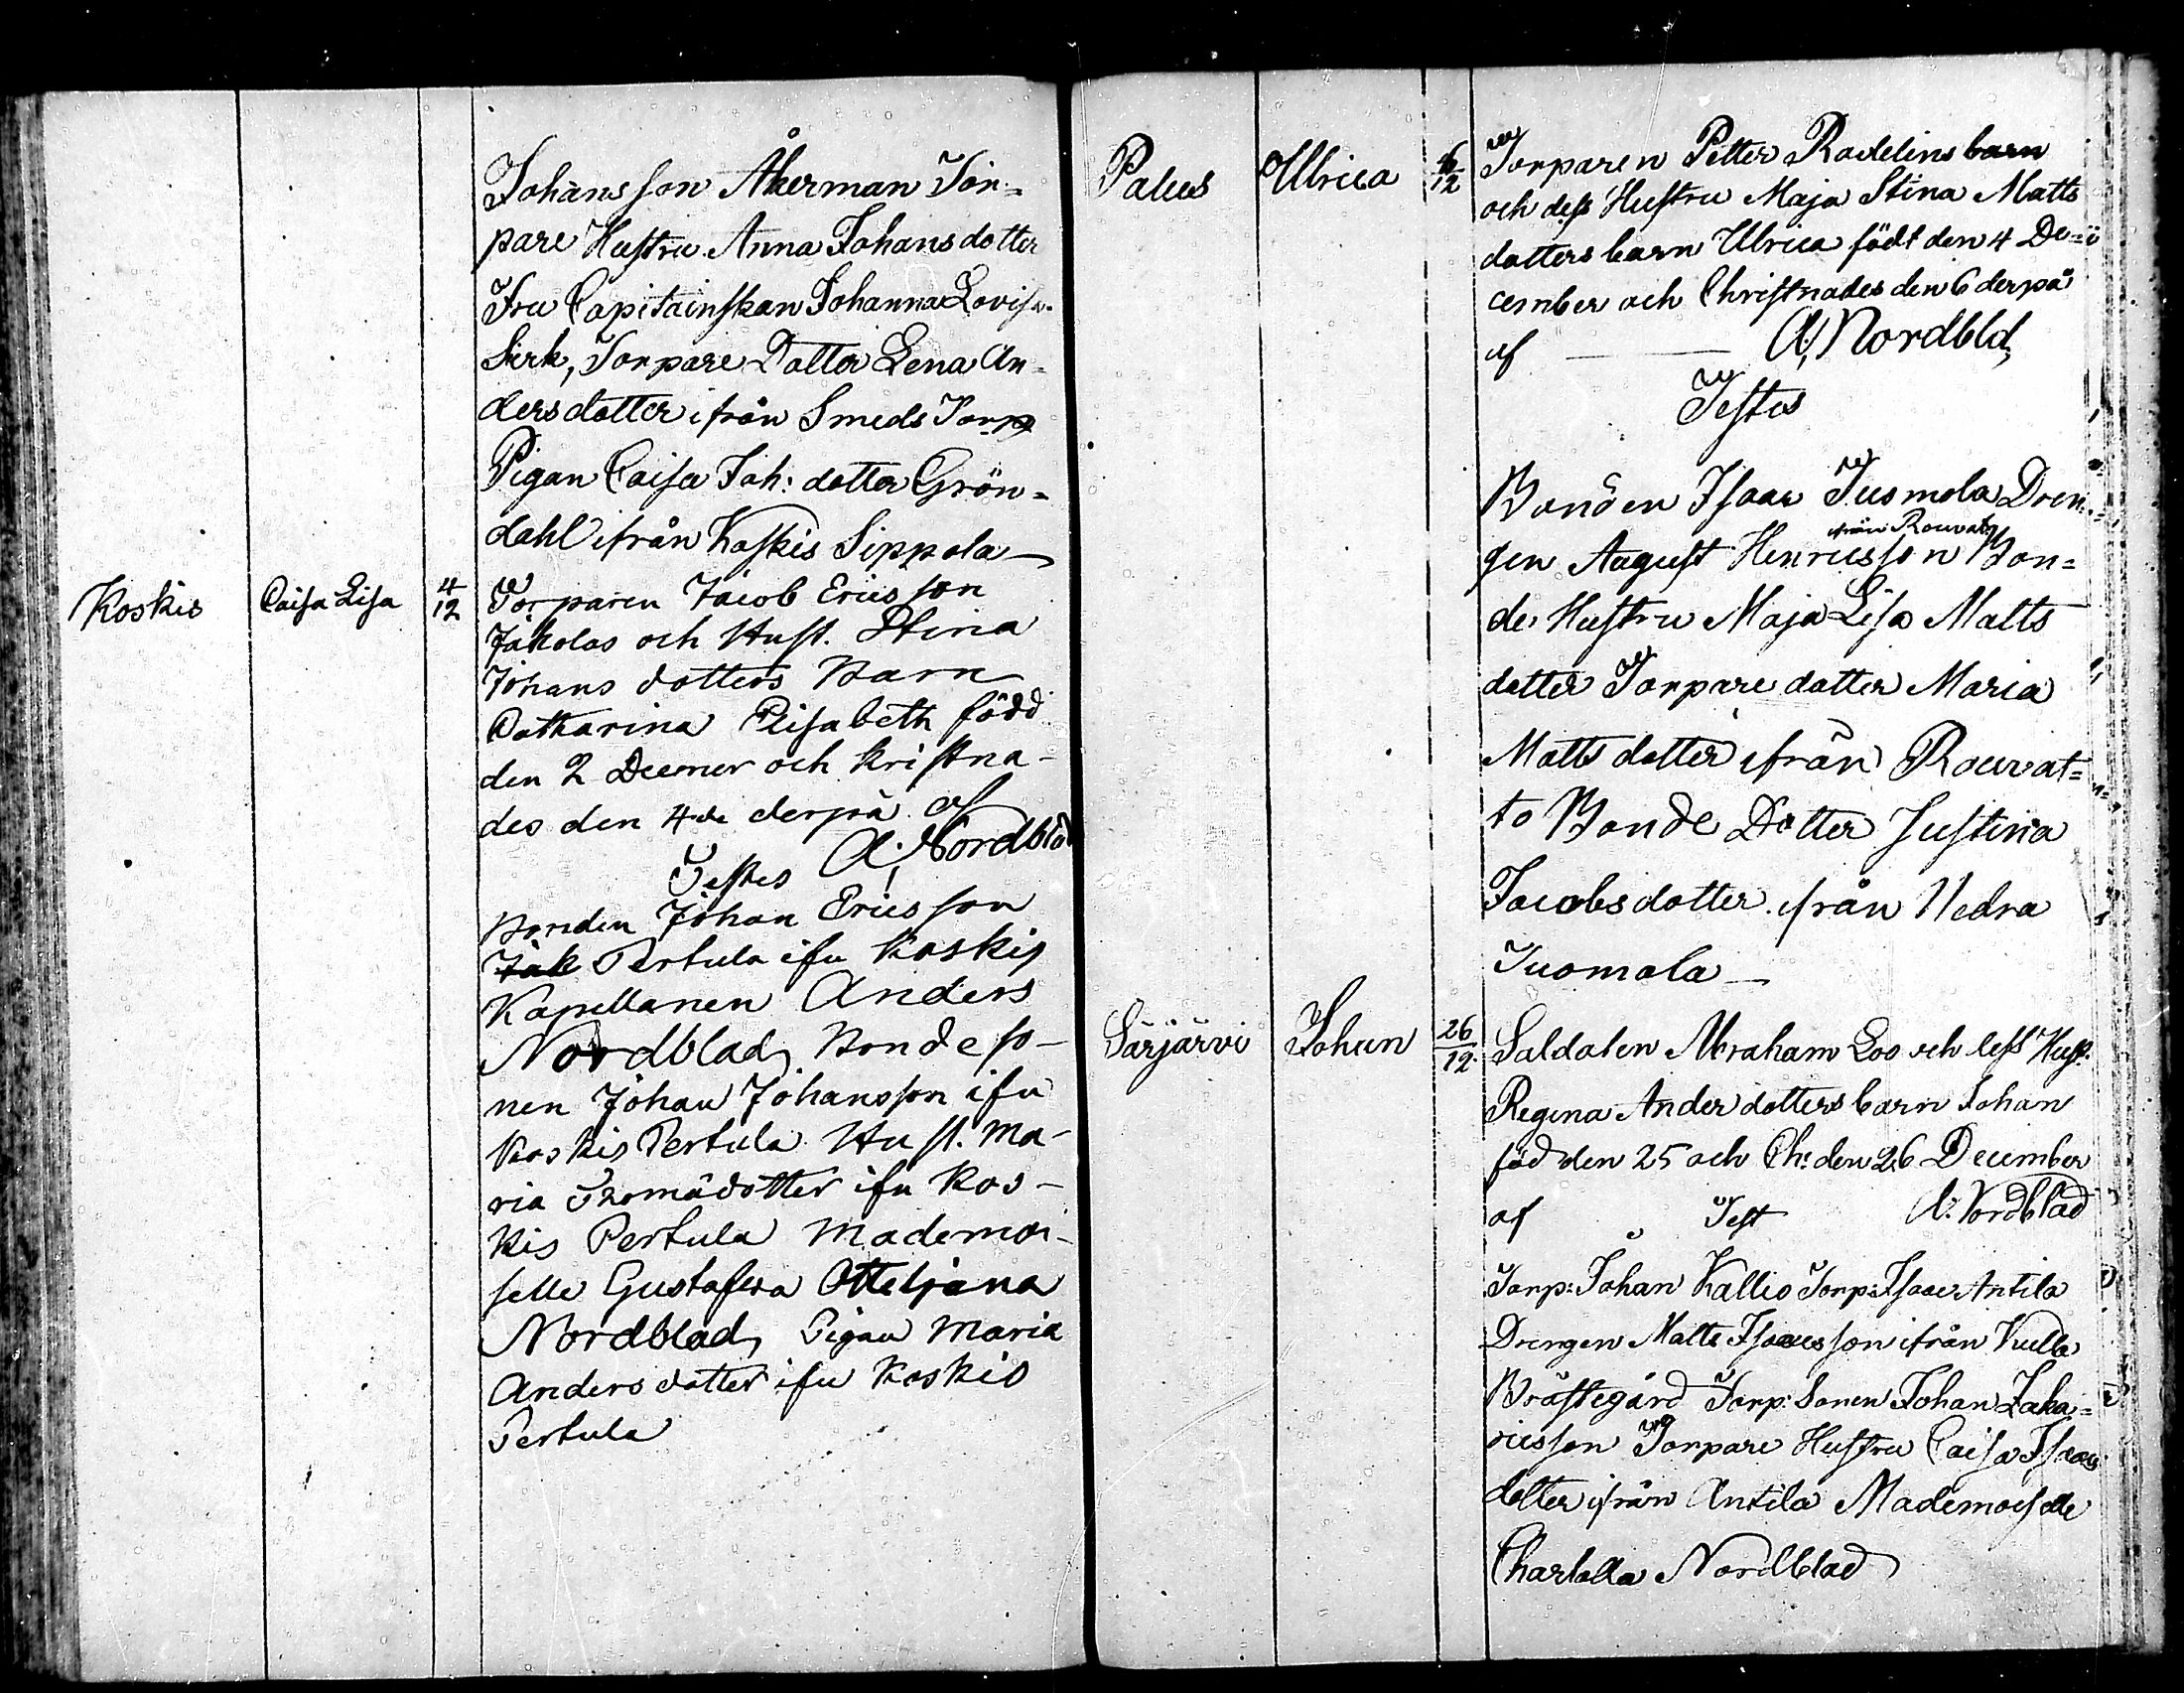 Johansson Åkerman Tor=
pare Hustru Anna Johansdotter
Fru Capitainskan Johanna Lovisa
Sirk, Torpare Dotter Lena An=
dersdotter ifrån Smeds Torp
Pigan Caisa Joh: dotter Grön=
dahl ifrån Koskis Sippola
Koskis Caisa Lisa 4/12 Torparen Jacob Ericsson
Jäkolas och Hust. Stina
Johans dotters Barn
Catharina Elisabeth född
den 2 Decemer och kristna-
des den 4de derpå af
Testes A. Nordblad
Bonden Johan Ericsson
Jäk Pertula ifrn Koskis
Kapellanen Anders
Nordblad, Bondeso-
nen Johan Johansson ifrn
Koskis Pertula Hust. Ma-
ria Thomädotter ifrn Kos-
kis Pertula Mademoi-
selle Gustafva Otteljana
Nordblad, Pigan Maria
Anders dotter ifrn Koskis
Pertula
Palus Ulrica 6/12 Torparen Petter Rodelins barn
och dess Hustru Maja Stina Matts
dotters barn Ulrica födt den 4 De=
cember och Christnades den 6 derpå
af A, Nordbld,
Testes
Bonden Isaac Tuomola Dren=
från Rouvat
gen August Henricsson Bon=
de Hustru Maja Lisa Matts
dotter Torpare dotter Maria
Matts dotter ifrån Rouvat=
to Bonde Dotter Justina
Jacobsdotter ifrån Nedra
Tuomola
Särjärvi Johan 26/12 Soldaten Abraham Loo och dess Hust.
Regina Anderdotters barn Johan
föd den 25 och Ch: den 26 December
af Test A. Nordblad
Torp: Johan Kallio Torp: Isaac Antila
Drengen Matts Isaacsson ifrån Kulla
Bråstegård Torp: Sonen Johan Zaka=
riesson Torpare Hustru Caisa Isaacs
dotter ifrån Antila Mademoiselle
Charlotta Nordblad